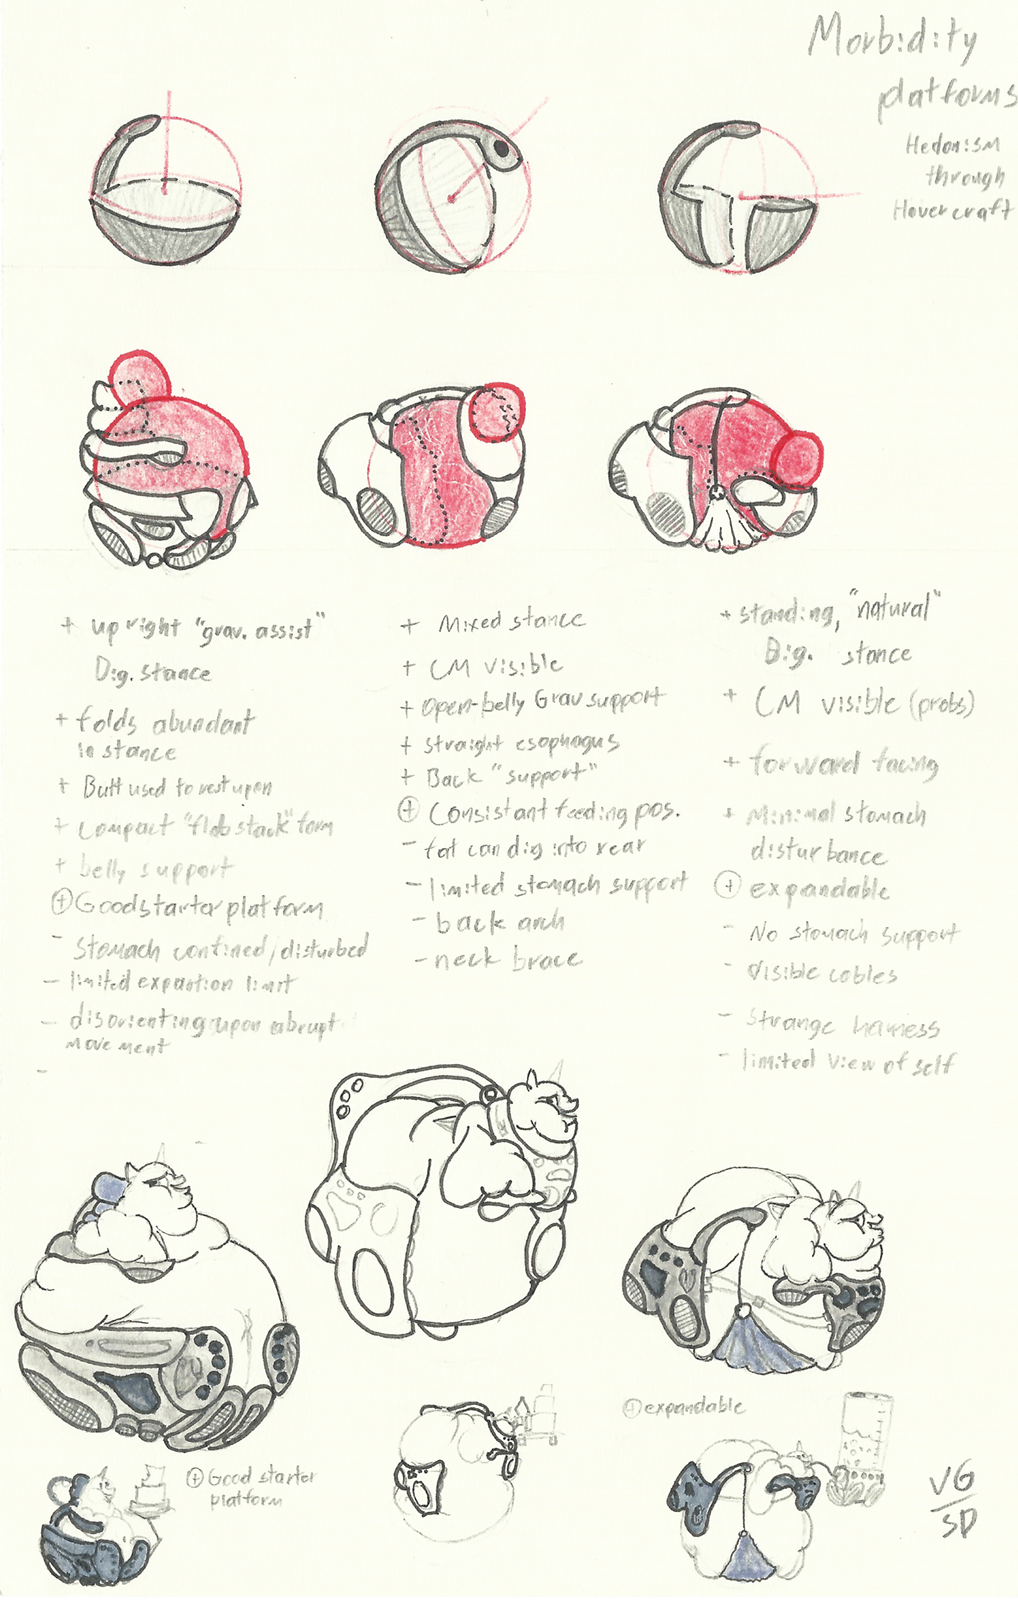 Morbidity
platforms
Hedonism
through
Hovercraft
+ upright "grav. assist"
Dig. stance
+ folds abundant
in stance
+ Butt used to rest upon
+ Compact "flab stack" form
+ belly support
⊕ Good starter platform
- Stomach confined/disturbed
- limited expantion limit
- disorienting upon abrupt
movement
-
+ Mixed stance
+ CM visible
+ Open-belly Grav support
+ straight esophagus
+ Back "support"
⊕ Consistant feeding pos.
- fat can dig into rear
- limited stomach support
- back arch
- neck brace
+ standing, "natural"
Dig. stance
+ CM visible (probs)
+ forward facing
+ Minimal stomach
disturbance
⊕ expandable
- No stomach support
- visible cables
- Strange harness
- limited view of self
⊕ Good starter
platform
⊕ expandable
VG
SD